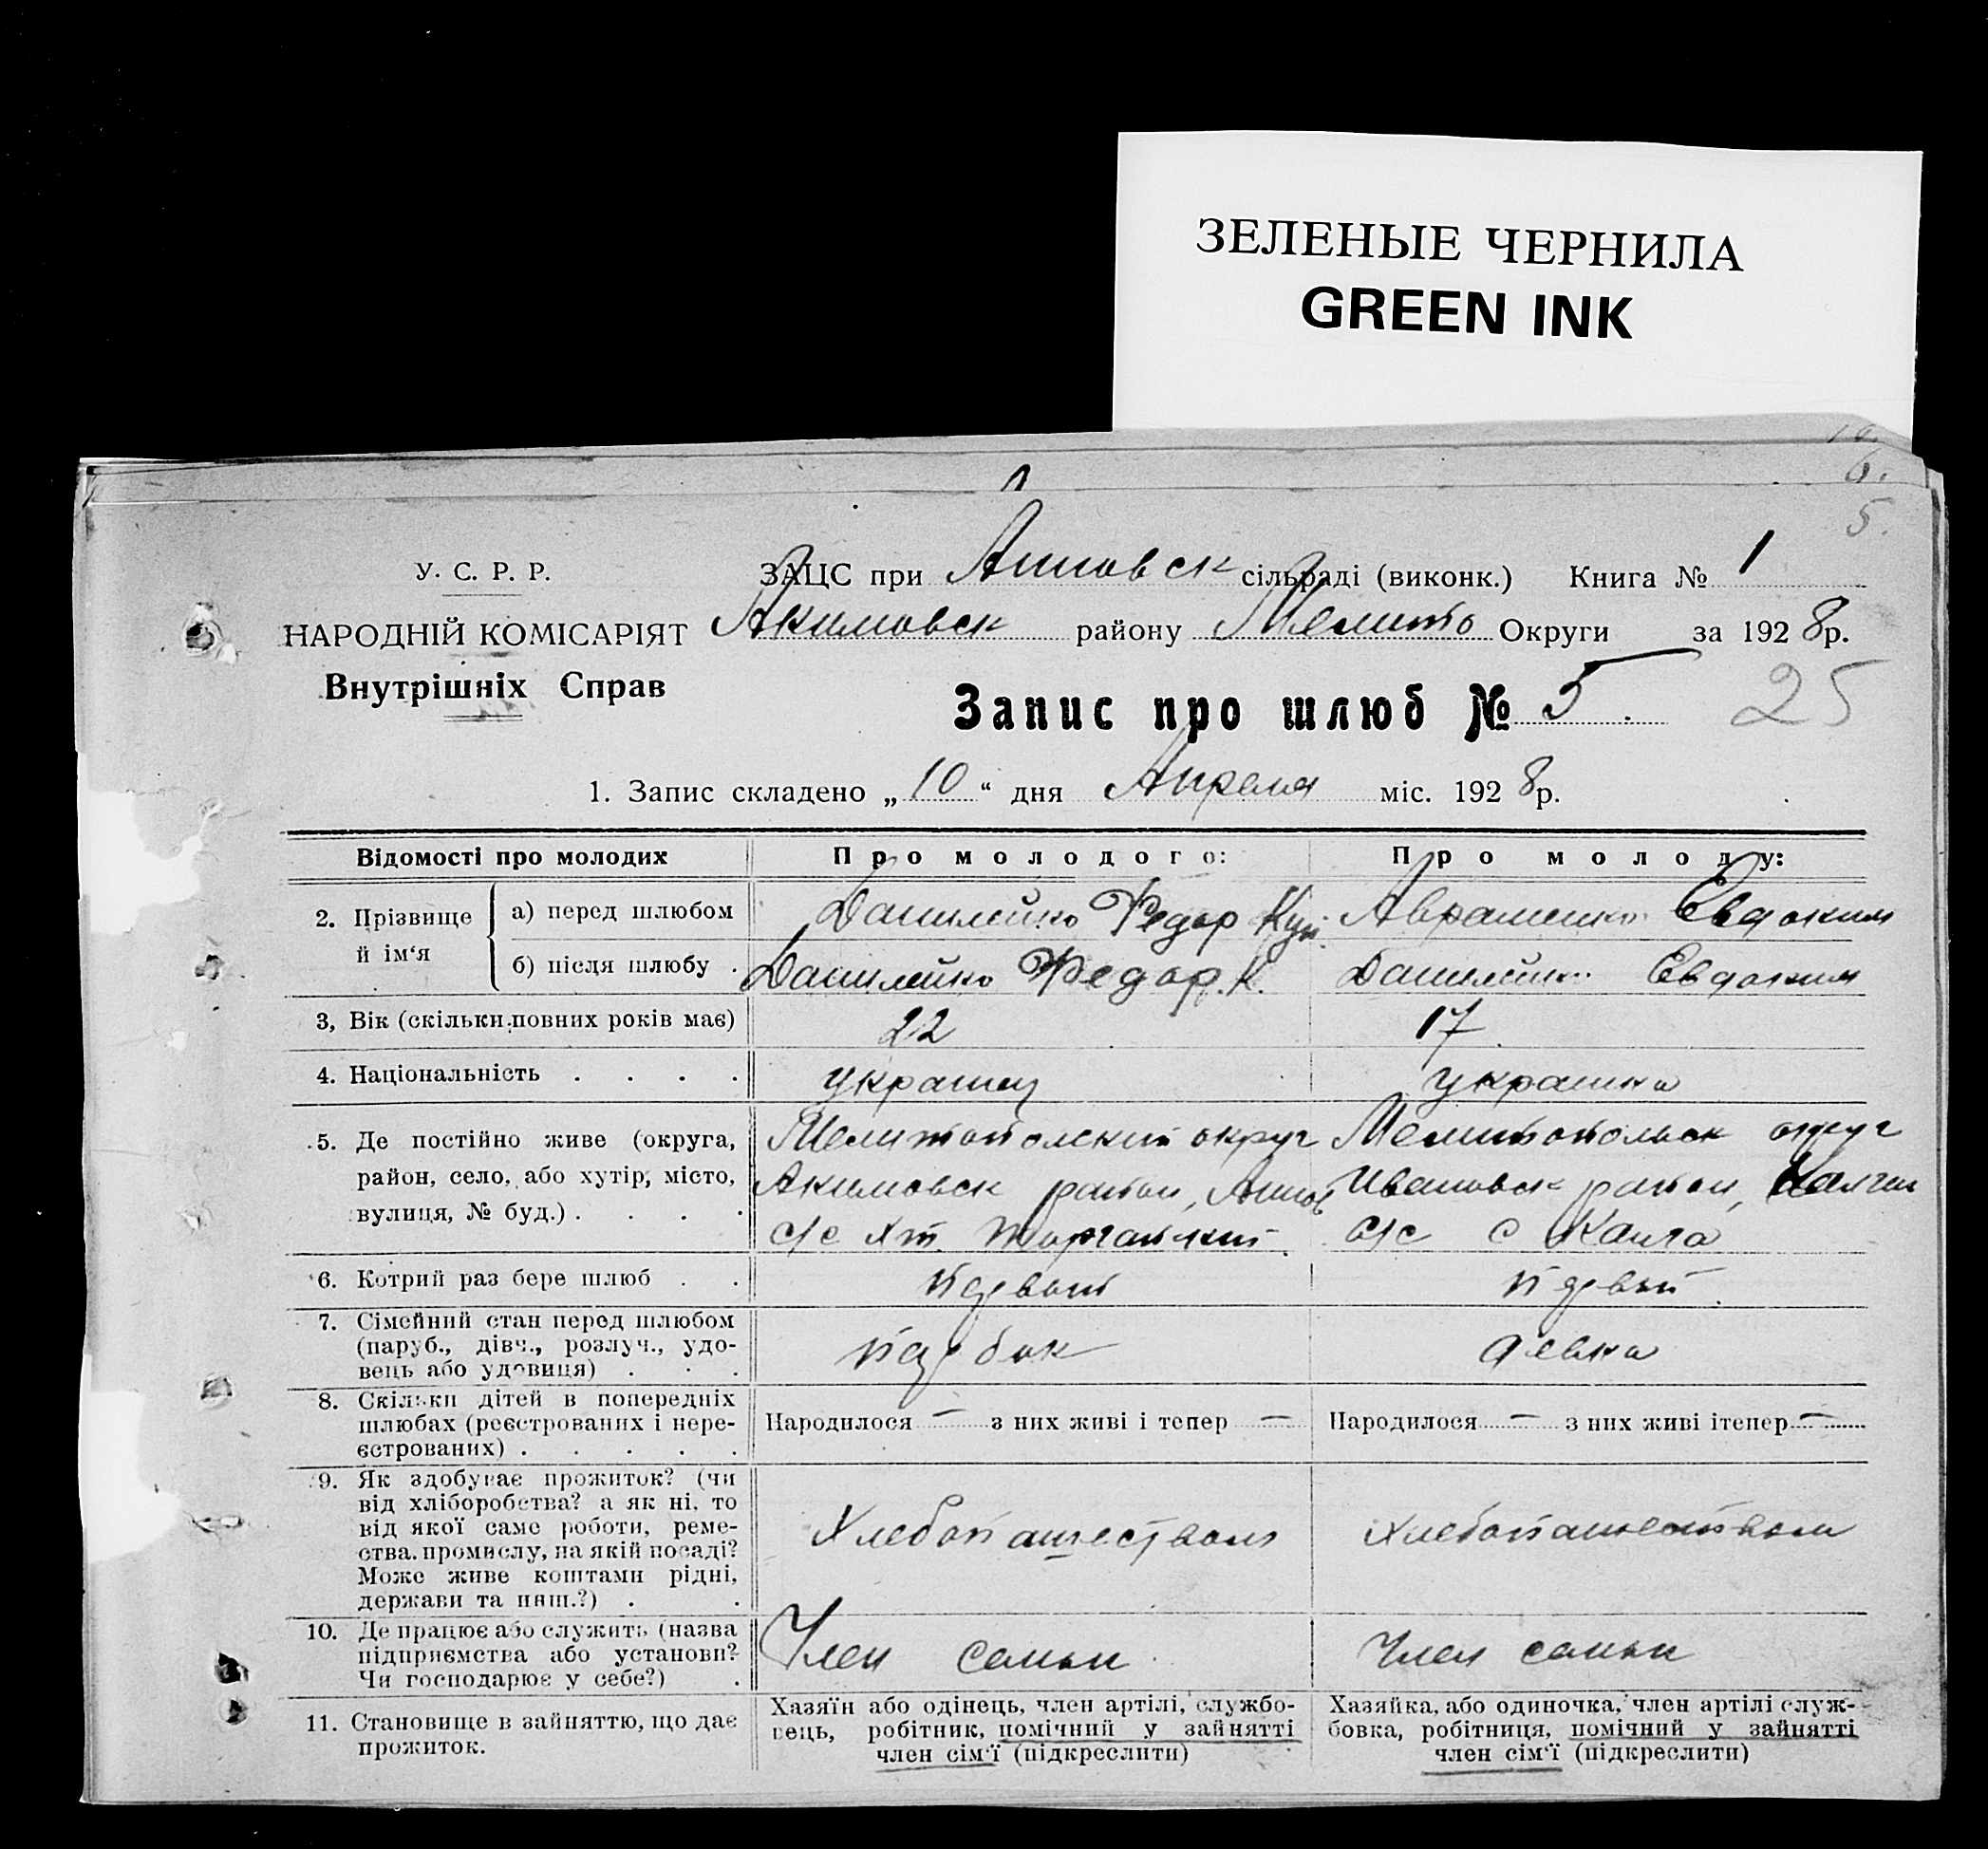 ЗЕЛЕНЫЕ ЧЕРНИЛА
GREEN INK
6.
5.
У. С. Р. Р.
НАРОДНІЙ КОМІСАРІЯТ
Внутрішніх Справ
ЗАЦС при Анновск сільраді (виконк.) Книга № 1
Акимовск району Мелито Округи за 1928р.
Запис про шлюб № 5
25
1. Запис складено „10“ дня Апреля міс. 1928р.
Відомості про молодих Про молодого: Про молоду:
2. Прізвище й ім‘я
а) перед шлюбом Данилейко Федор Авраменко Евдоким
б) після шлюбу . Данилейко Федор. К. Данилейко Евдоким
3, Вік (скільки повних років має) 22 17
4. Національність . . . . украинец украинка
5. Де постійно живе (округа, район, село, або хутір, місто, вулиця, № буд.) . . . .
Мелитополский округ
Акимовск район,
с/с хт.
Мелитопольск округ
Ивановск район,
с/с с
6. Котрий раз бере шлюб . . первый первый
7. Сімейний стан перед шлюбом
(паруб., дівч., розлуч., удо-
вець або удовиця) . . .
паробок девка
8. Скільки дітей в попередніх
шлюбах (реєстрованих і нере-
єстрованих) . . . . .
Народилося — з них живі і тепер — Народилося — з них живі ітепер —
9. Як здобуває прожиток? (чи
від хліборобства? а як ні, то
від якої саме роботи, реме-
ства. промислу, на якій посаді?
Може живе коштами рідні,
держави та инш.?) . .
Хлебопашеством Хлебопашеством
10. Де працює або служить (назва
підприємства або установи?
Чи господарює у себе?) .
Член семьи Член семьи
11. Становище в зайняттю, що дає
прожиток.
Хазяїн або одінець, член артілі, службо-
вець, робітник, помічний у зайнятті
член сім‘ї (підкреслити)
Хазяйка, або одиночка, член артілі служ-
бовка, робітниця, помічний у зайнятті
член сім‘ї (підкреслити)